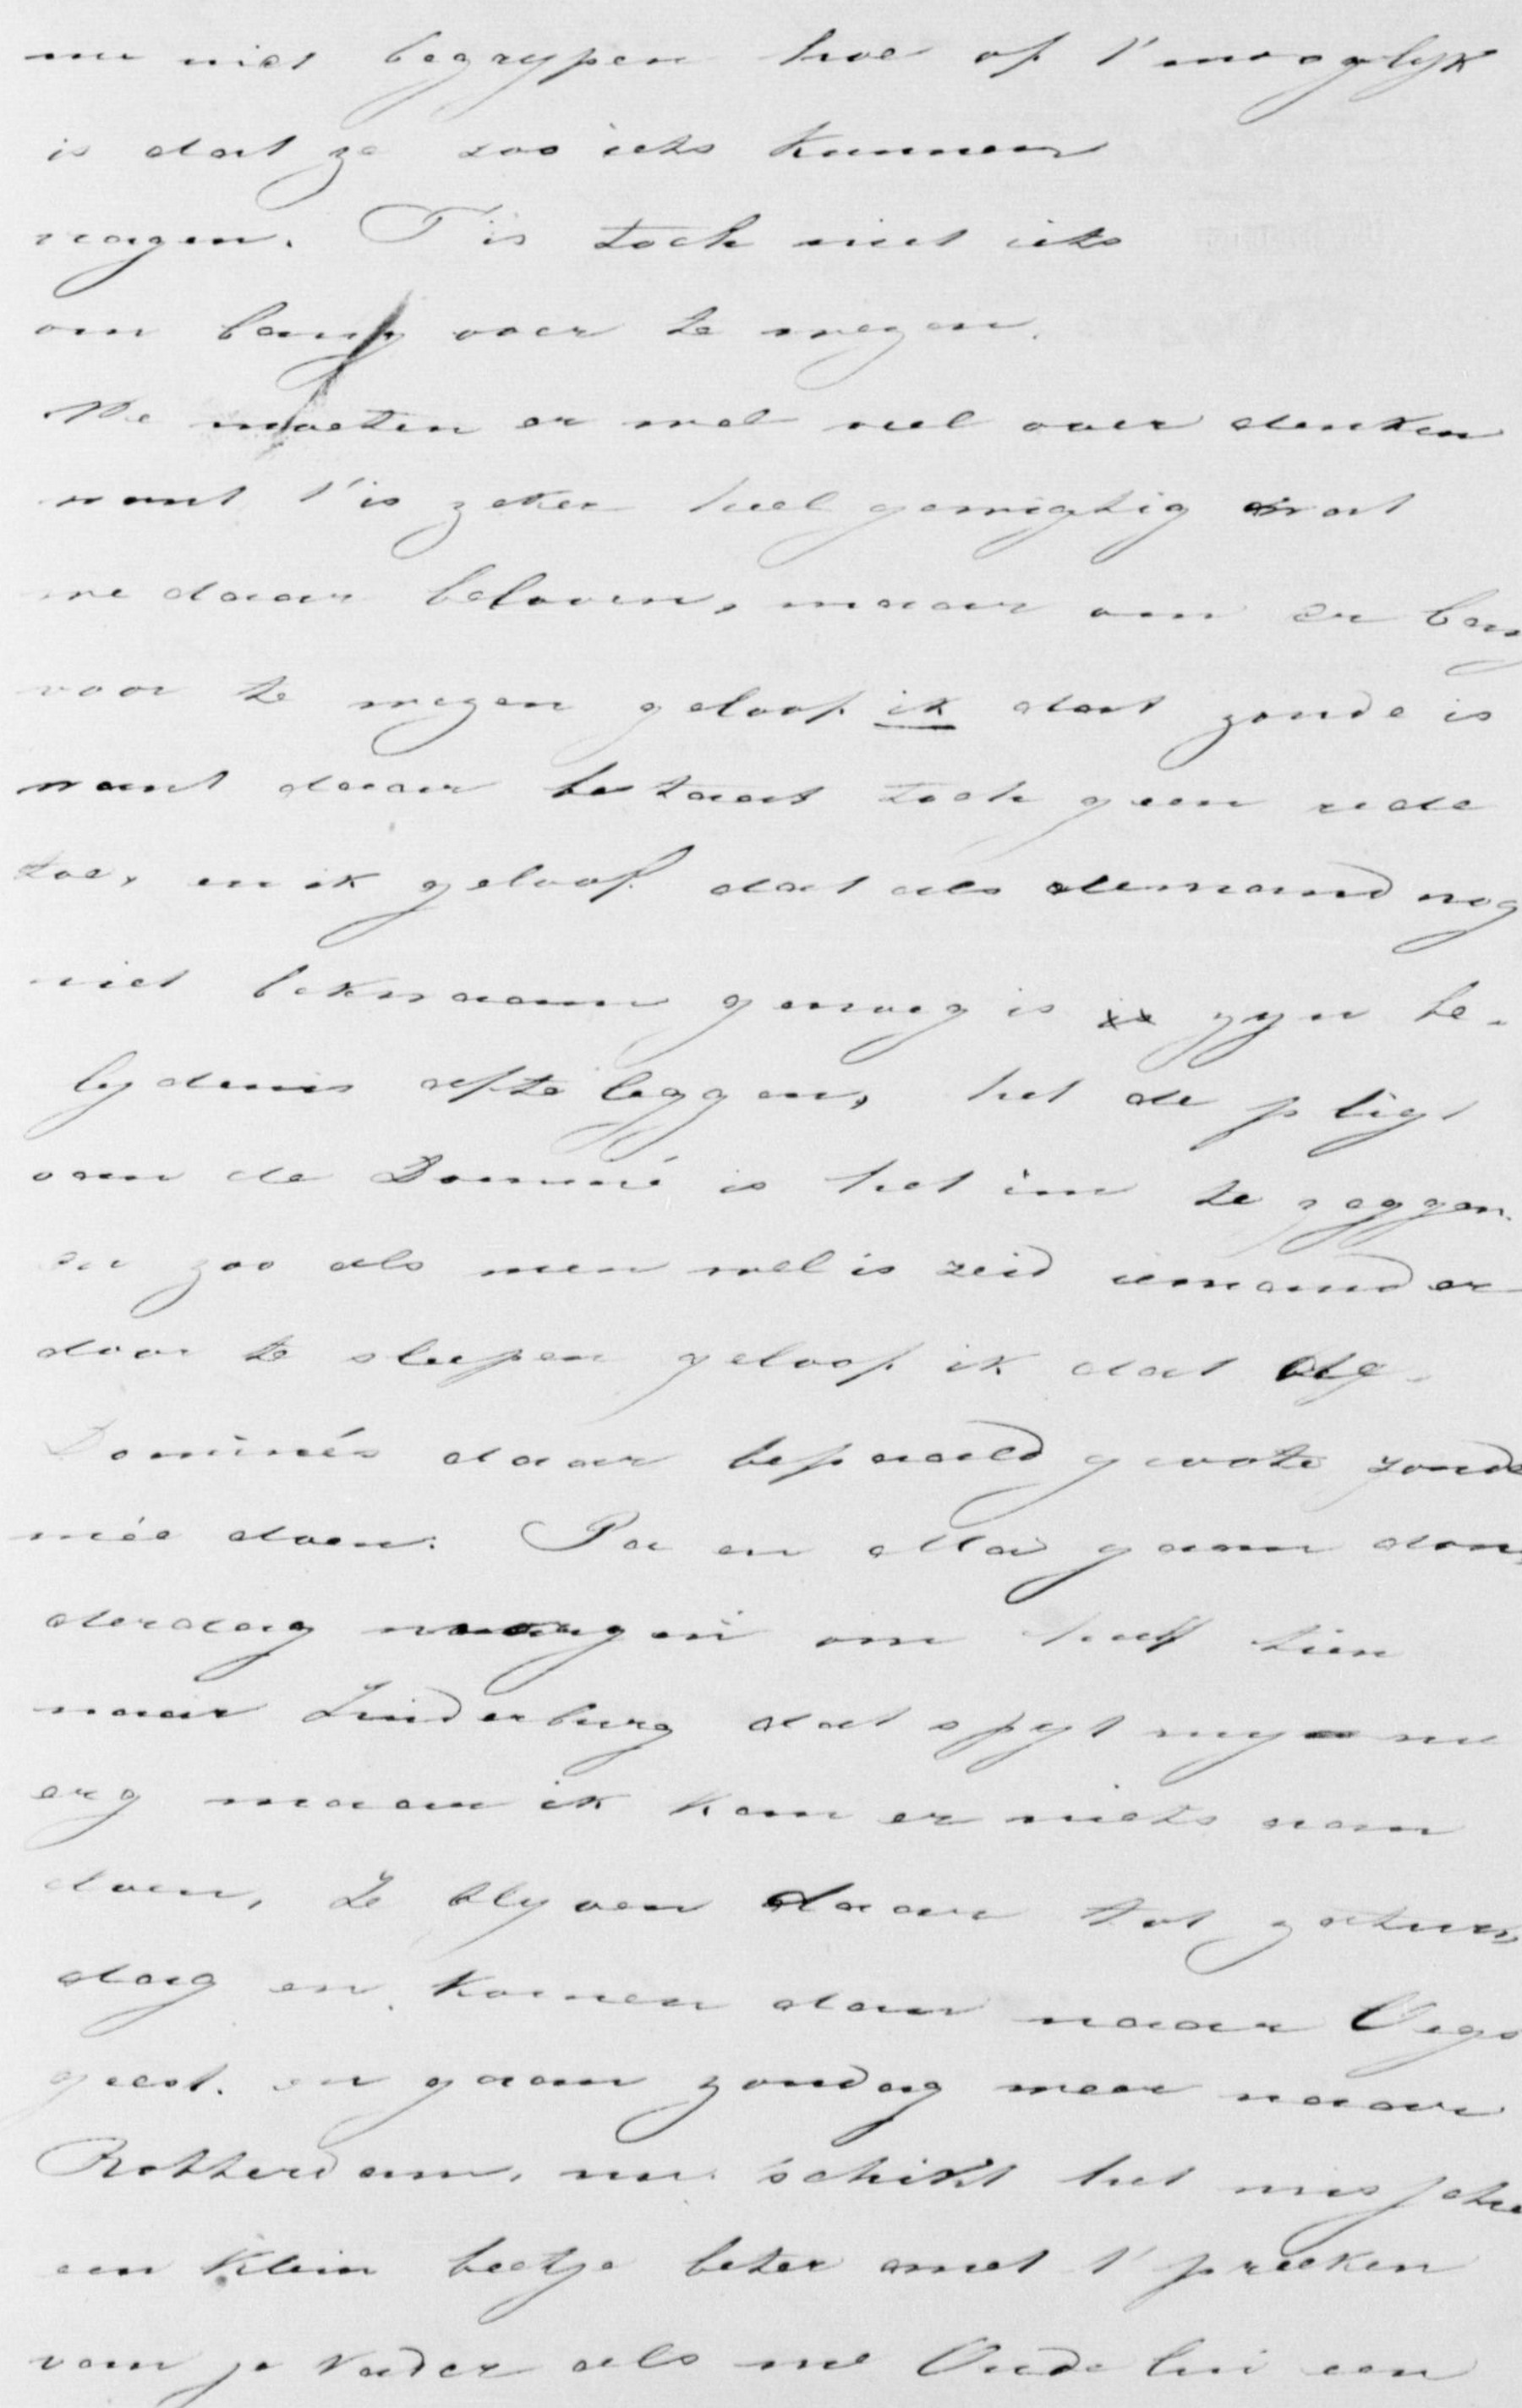 nu niet begrypen hoe of t' mogelyk
is dat ze zoo iets kunnen
vragen. T' is toch niet iets
om bang voor te wezen.
We moeten er wel veel over denken
want t' is zeker heel gewigtig wat
we daar beloven, maar om er bang
voor te wezen geloof ik dat zonde is
want daar bestaat toch geen rede
toe, en ik geloof dat als iemand nog
niet bekwaam genoeg is zyn be-
lydenis afteleggen, het de pligt
van de Dominé is het im te zeggen.
en zoo als men wel is zeid iemand er
door te slepen geloof ik dat de
Dominés daar bepaald groote zonde
mée doen. Pa en Ma gaan don,
derdag morgen om half tien
naar Linderburg dat spyt my nu
erg maar ik kan er niets aan
doen, Ze blyven daar tot zatur,
dag en komen dan naar Oegs
geest. en gaan zondag weer naar
Rotterdam, nu schikt het misschien
een klein beetje beter met t' preeken
van je Vader als me Oude lui een